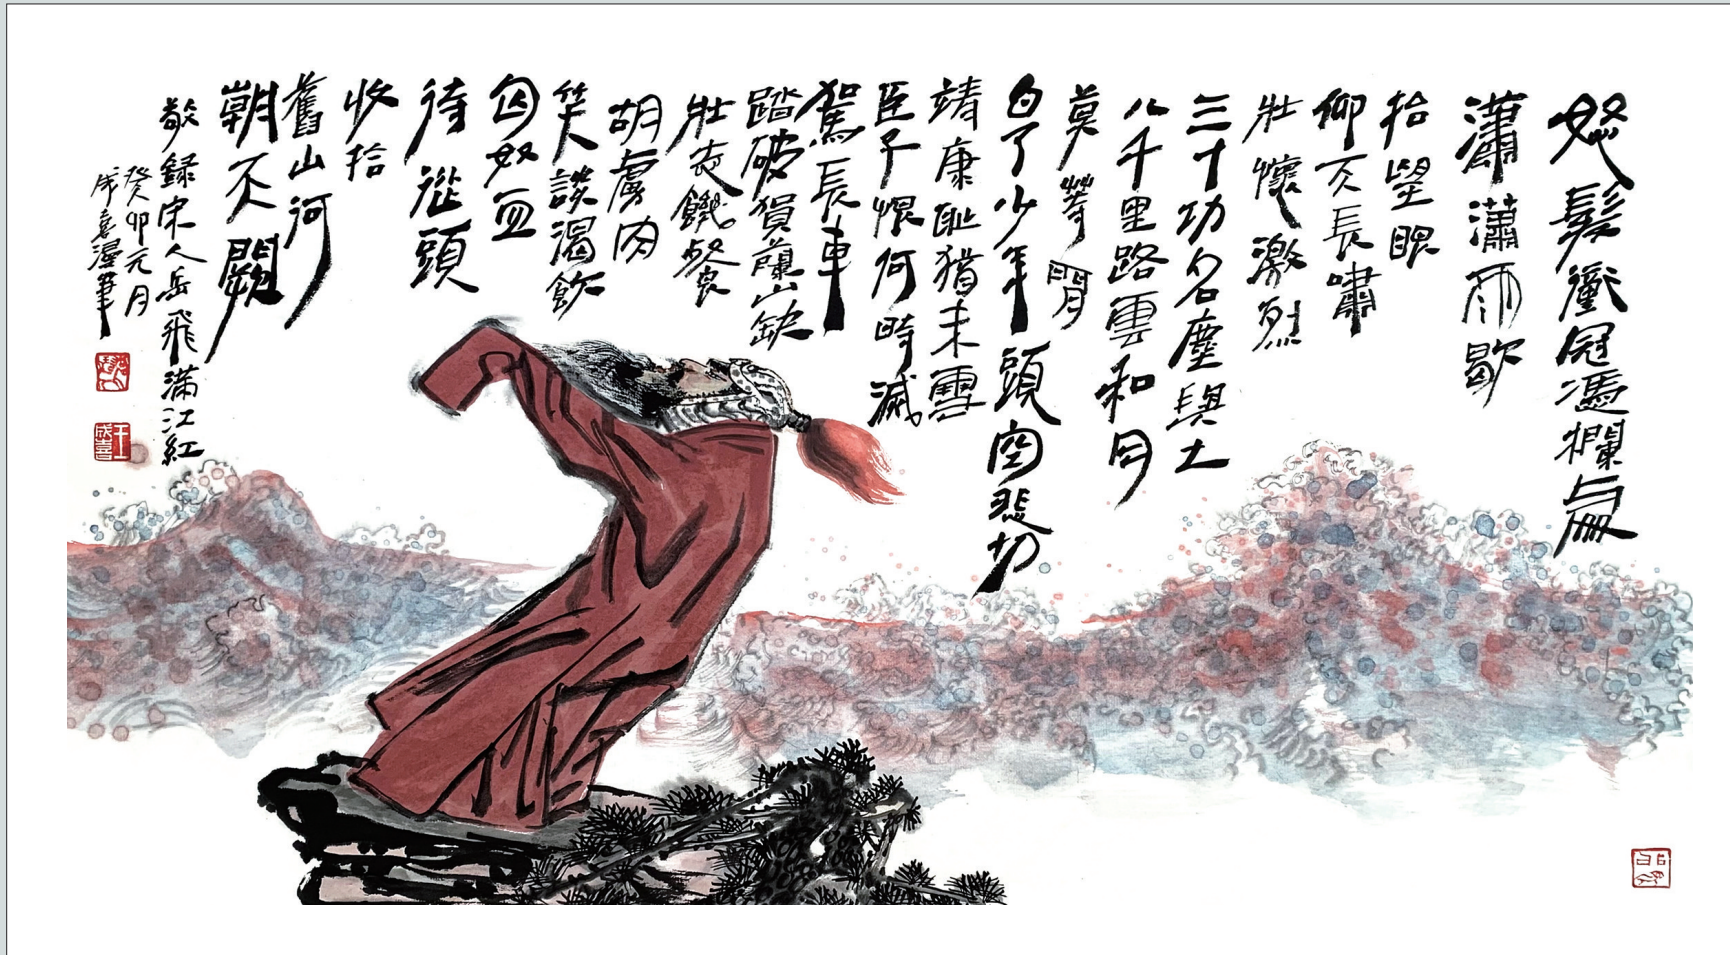 怒髮衝冠憑欄處
瀟瀟雨歇
抬望眼
仰天長嘯
壯懷激烈
三十功名塵與土
八千里路雲和月
莫等閒
白了少年頭空悲切
靖康恥猶未雪
臣子恨何時滅
駕長車
踏破賀蘭山缺
壯志饑餐
胡虜肉
笑談渴飲
匈奴血
待從頭
收拾
舊山河
朝天闕
敬錄宋人岳飛滿江紅
癸卯元月
成喜漫筆
王成喜